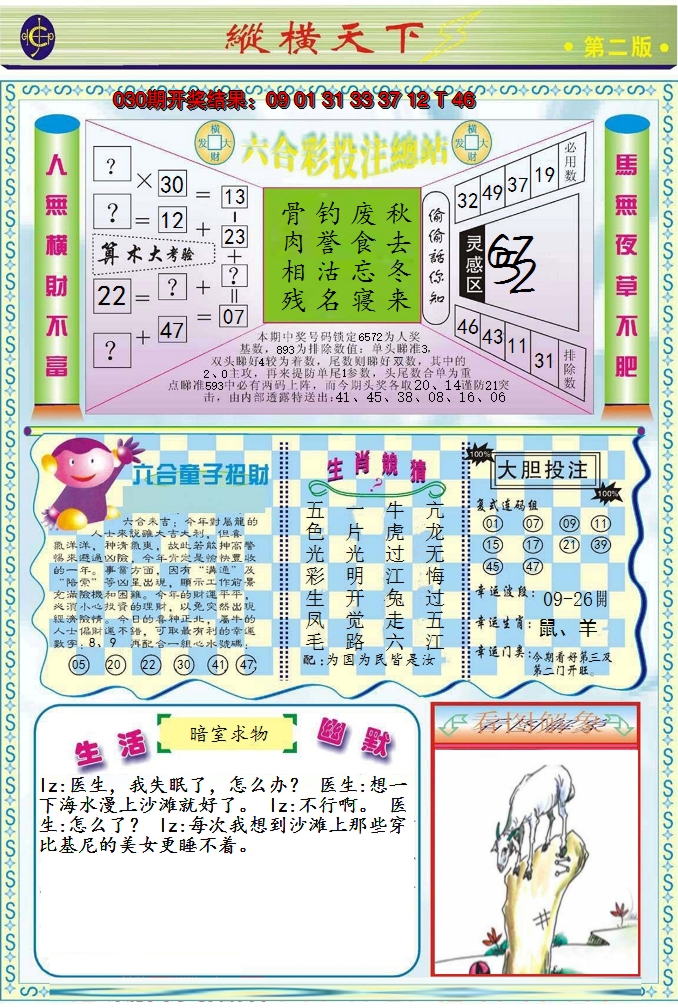 縱橫天下
第二版
030期开奖结果：09 01 31 33 37 12 T 46
人無橫財不富
馬無夜草不肥
橫
发 大
财
六合彩投注總站
橫
发 大
财
? × 30 = 13
? = 12 + 23
算术大考验
22 = ? + ?
? + 47 = 07
骨 钓 废 秋
肉 誉 食 去
相 沽 忘 冬
残 名 寝 来
偷偷話你知
32 49 37 19 必用数
灵感区
46 43 11 31 排除数
本期中奖号码锁定6572为人奖
基数，893为排除数值：单头睇准3，
双头睇好4较为着数，尾数则睇好双数，其中的
2、0主攻，再来提防单尾1参数，头尾数合单为重
点睇准593中必有两码上阵，而今期头奖各取20、14谨防21突
击，由内部透露特送出:41、45、38、08、16、06
六合童子招財
六合來吉：今年對屬龍的
人士來説雖大吉大利，但喜
氣洋洋，種清氣爽，故此若能神高警
惕來避過凶險，今年介定是愉快豐收
的一年。事當方面，因有“溝通”及
“陪索”等凶星出現，顯示工作前景
充滿險機和困難。今年的財運平平，
必須小心投資的理財，以免突然出現
經濟險情。今日的喜神正北，屬牛的
人士偏財運不錯，可取最有利的幸運
數字：8、9 再配合一組心水號碼：
05 20 22 30 41 47
生肖競猜
?
五 一 牛 亢
色 片 虎 龙
光 光 过 无
彩 明 江 悔
生 开 兔 过
凤 觉 走 五
毛 路 六 江
配:为国为民皆是汝
100%
大胆投注
100%
复式连码组
01 07 09 11
15 17 21 39
45 47
幸运波段： 09-26開
幸运生肖： 鼠、羊
幸运门类：今期看好第三及
第二门开旺。
生活
暗室求物
幽默
lz:医生，我失眠了，怎么办？ 医生:想一
下海水漫上沙滩就好了。 lz:不行啊。 医
生:怎么了？ lz:每次我想到沙滩上那些穿
比基尼的美女更睡不着。